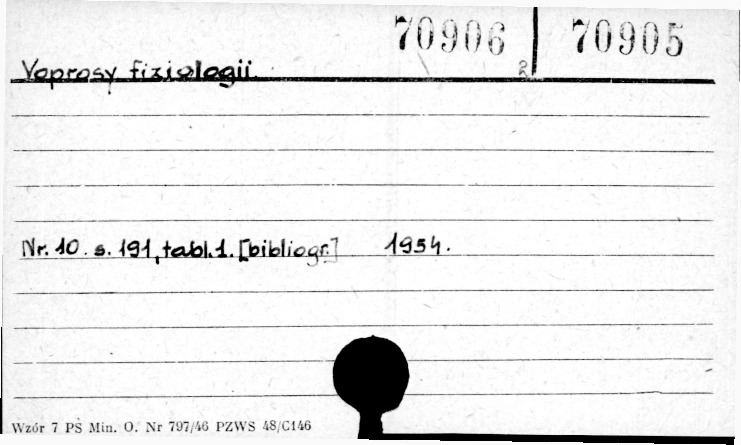 70906 70905
Voprosy fiziologii. 2
Nr. 10. s. 191, tabl. 1. [bibliogr.] 1954.
Wzór 7 PS Min. O. Nr 797/46 PZWS 48/C146